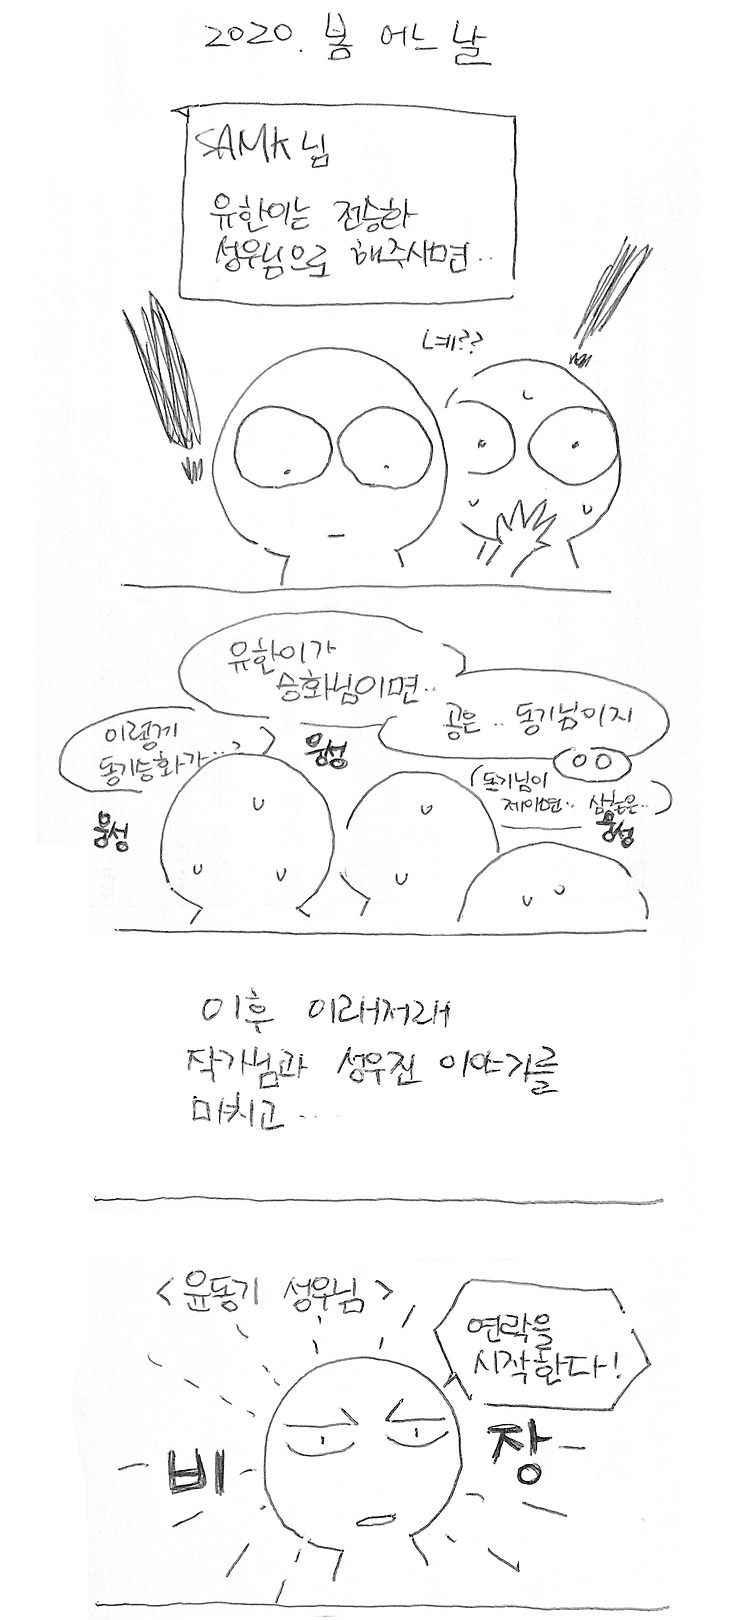 2020. 봄 어느 날
SAMK님
유한이는 전승화
성우님으로 해주시면..
네??
유환이가
승화님이면..
공은.. 동기님이지
이렇게
동기승화가...?
웅성
동기님이
제이면.. 삼촌은..
웅성
웅성
이후 이래저래
작가님과 성우진 이야기를
마치고....
<윤동기 성우님>
연락을
시작한다!
비
장